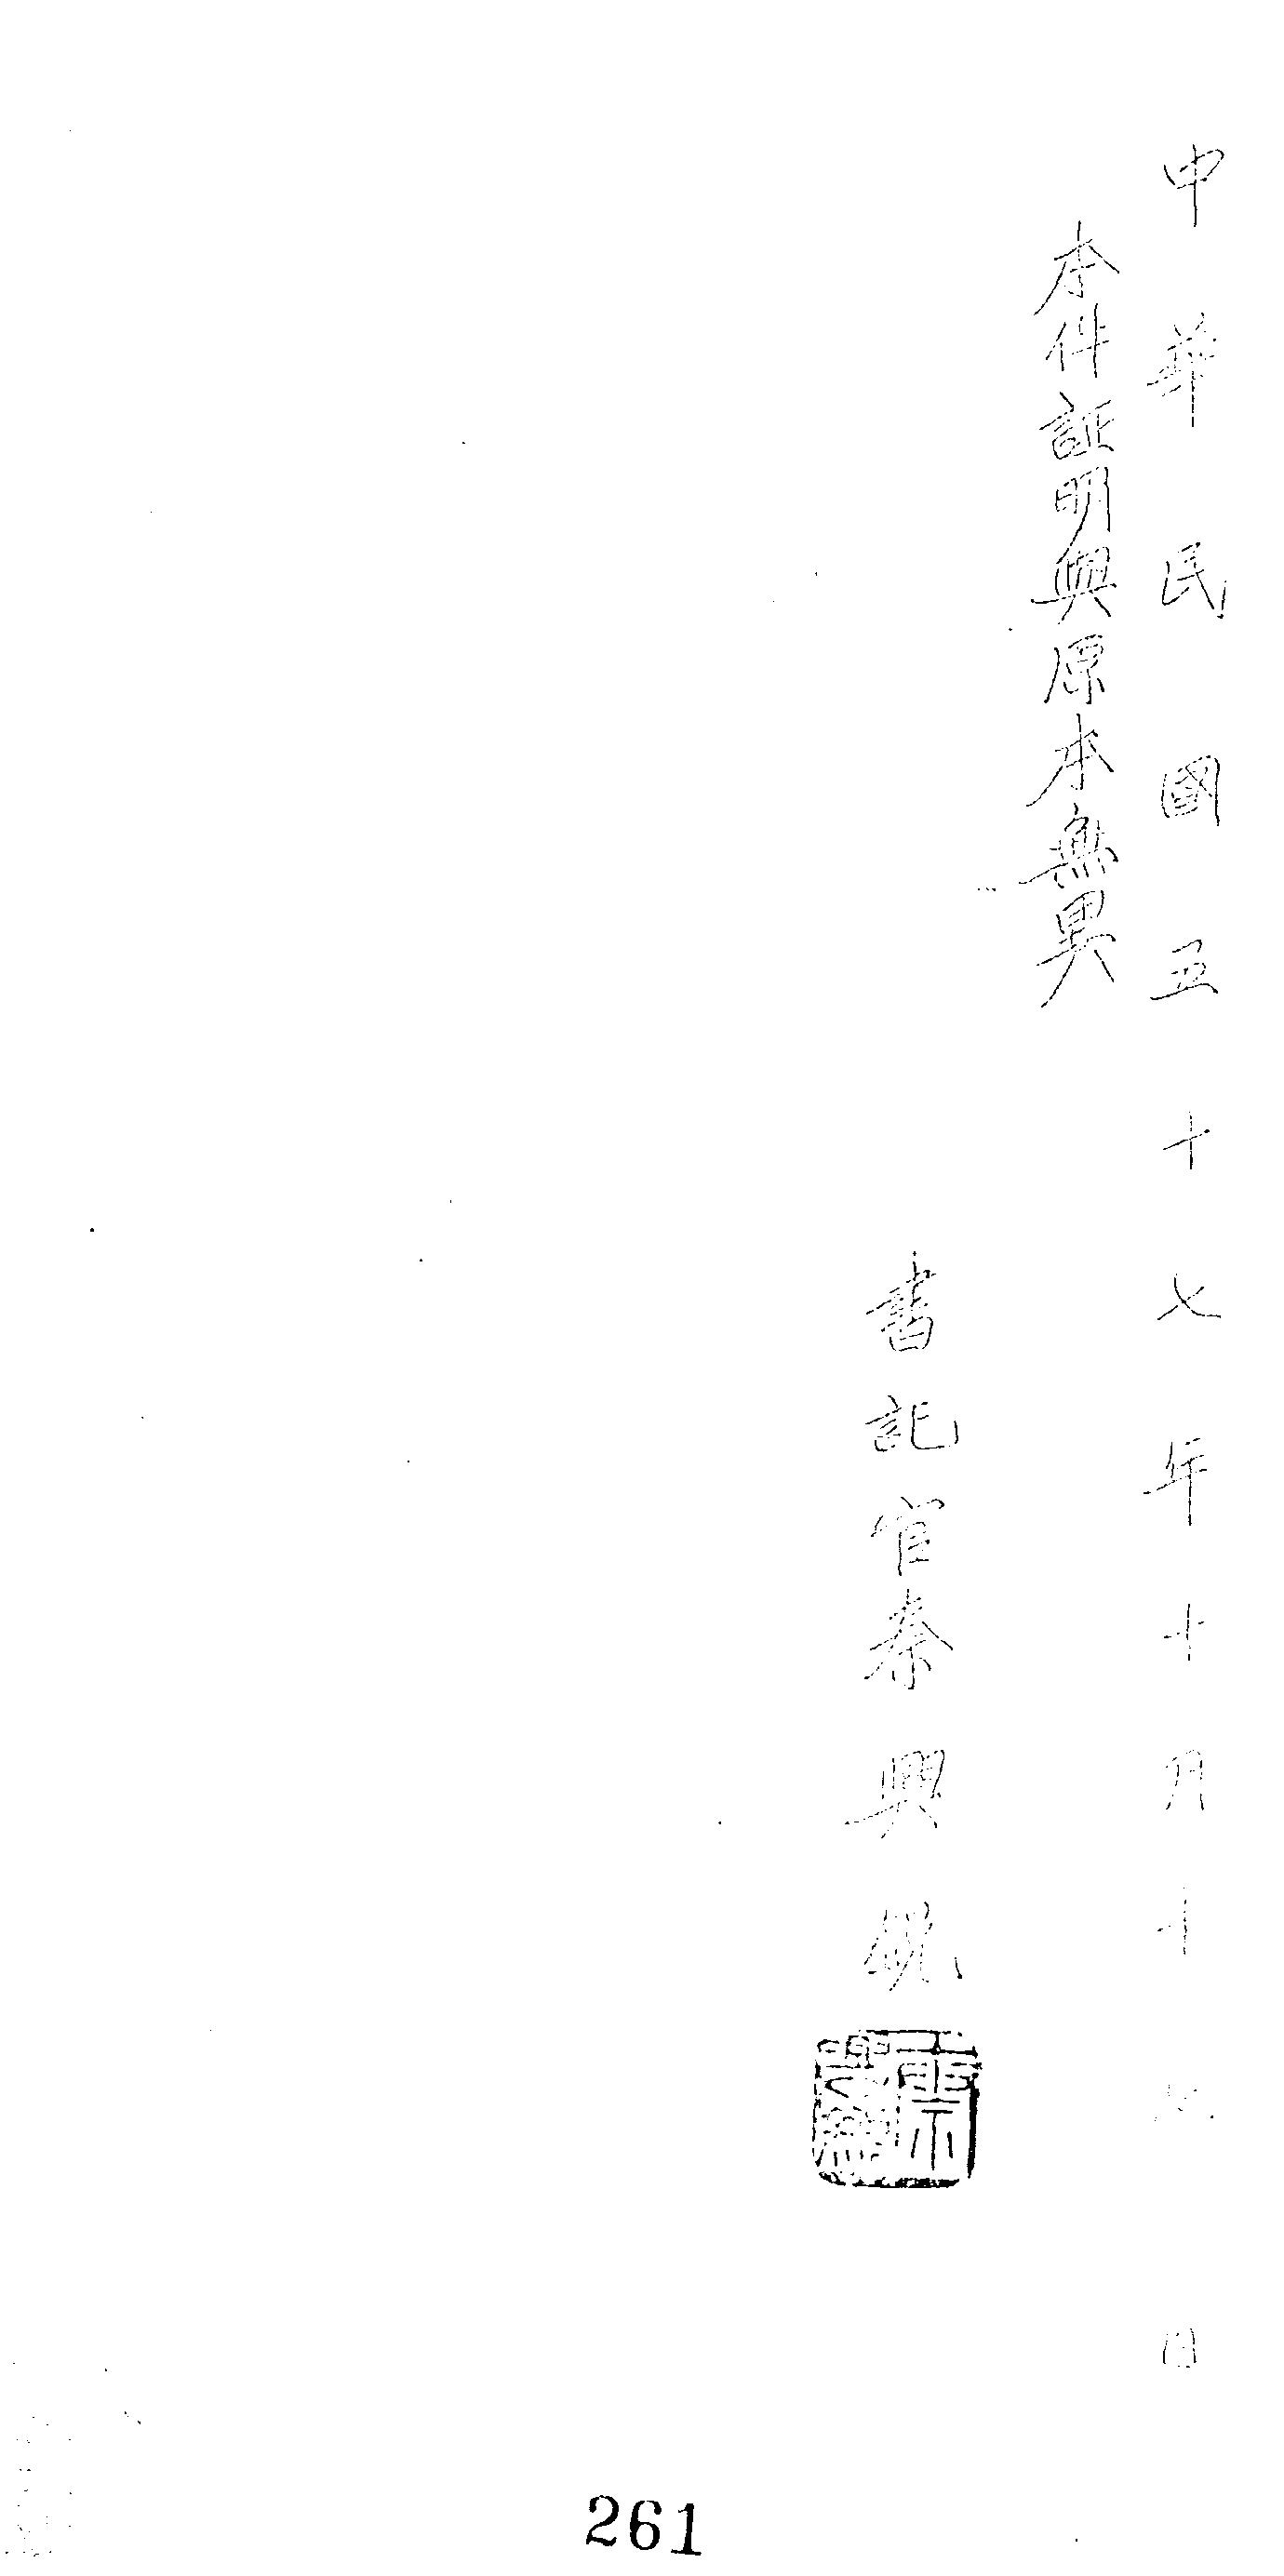 中華民國五十七年十月十日
本件証明與原本無異
書記官秦興
261